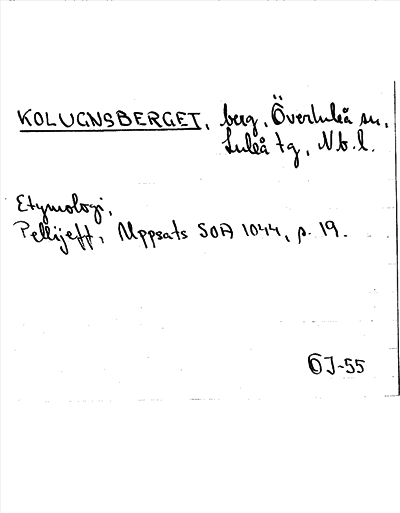 KOLUGNSBERGET, berg, Överluleå sn,
Luleå tg, Nb.l.
Etymologi,
Pellijeff, Uppsats SOA 1044, p. 19.
ÖJ-55